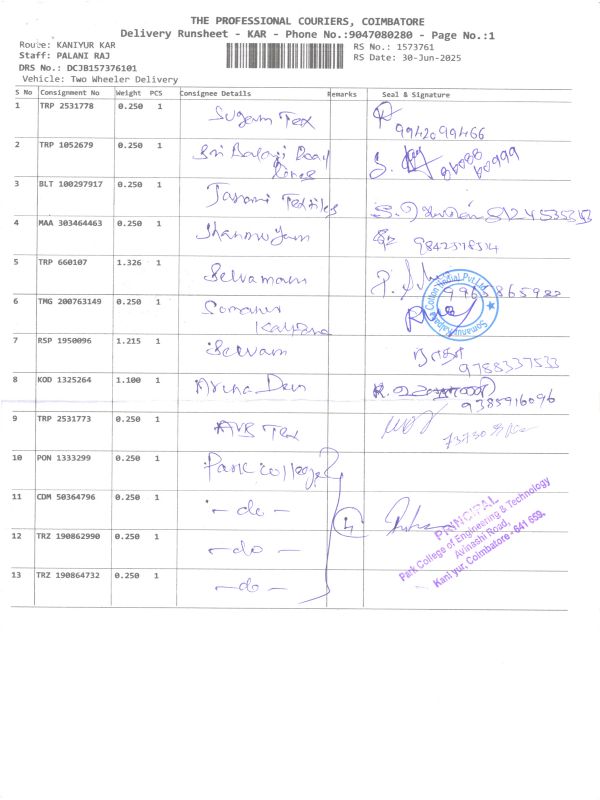 THE PROFESSIONAL COURIERS, COIMBATORE
Delivery Runsheet - KAR - Phone No.:9047080280 - Page No.:1
Route: KANIYUR KAR
RS No.: 1573761
Staff: PALANI RAJ
RS Date: 30-Jun-2025
DRS No.: DCJB157376101
Vehicle: Two Wheeler Delivery
S No Consignment No Weight PCS Consignee Details Remarks Seal & Signature
1 TRP 2531778 0.250 1 Sugam Tex
99420 99466
2 TRP 1052679 0.250 1 Sri Balaji Road
Lines
3 BLT 100297917 0.250 1 Tarani Textiles
4 MAA 303464463 0.250 1 Shanmugam
5 TRP 660107 1.326 1 Selvamani
6 TMG 200763149 0.250 1 Somanur
Kalpana
7 RSP 1950096 1.215 1 Selvam
9788337533
8 KOD 1325264 1.100 1 Aruna Devi
9385916096
9 TRP 2531773 0.250 1 AVB Tex
10 PON 1333299 0.250 1 Park college
11 CDM 50364796 0.250 1 - do -
12 TRZ 190862990 0.250 1 - do -
13 TRZ 190864732 0.250 1 - do -
4
PRINCIPAL
Park College of Engineering & Technology
Avinashi Road,
Kaniyur, Coimbatore - 641 659.